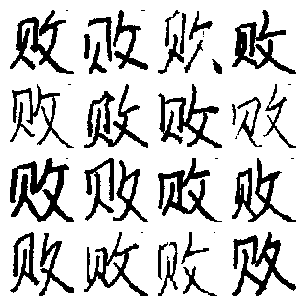 败败败败
败败败败
败败败败
败败败败